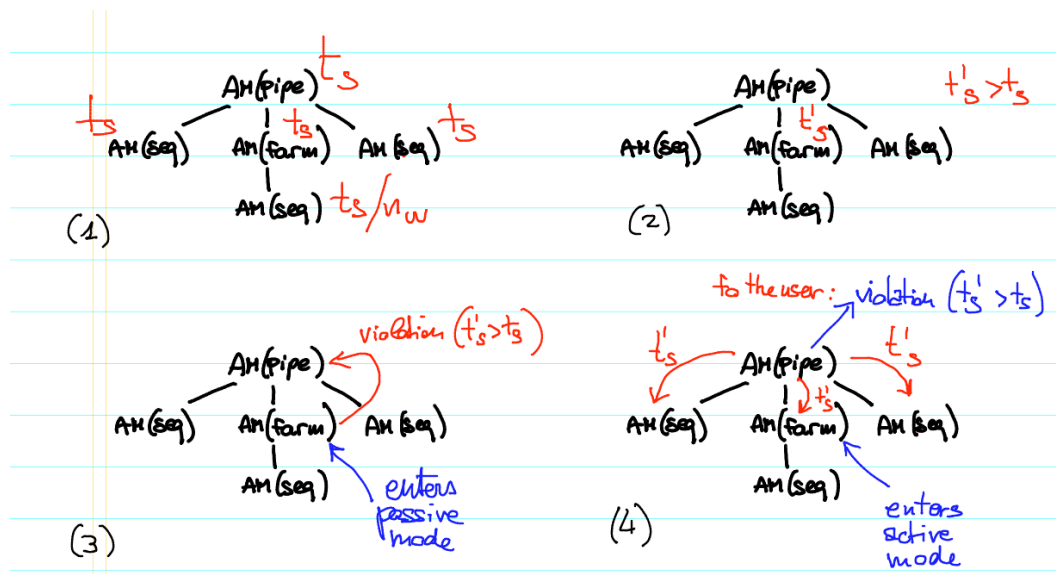 AM(pipe) t_s
t_s AM(seq) t_s AM(farm) AM(seq) t_s
AM(seq) t_s/n_w
(1)
AM(pipe) t'_s>t_s
AM(seq) t'_s AM(farm) AM(seq)
AM(seq)
(2)
violation (t'_s>t_s)
AM(pipe)
AM(seq) AM(farm) AM(seq)
AM(seq)
enters
passive
mode
(3)
to the user: violation (t'_s>t_s)
t'_s AM(pipe) t'_s
t'_s
AM(seq) AM(farm) AM(seq)
AM(seq)
enters
active
mode
(4)